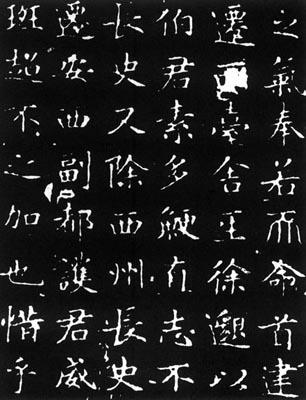 之氣奉若𠀑命首建
遷西臺舍𤯔徐邈以
伯君素多鯁直志不
長史又除西州長史
遷安西副都護君威
班超不之加也惜乎